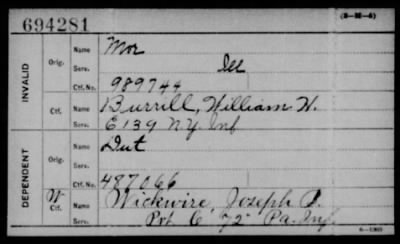 694281
(3-286)
INVALID
Orig.
Name
Mor
Serv.
Ill
Ctf. No.
989744
Ctf.
Name
Burrill, William W.
Serv.
E 139 N.Y. Inf
DEPENDENT
Orig.
Name
Dut
Serv.
Ctf. No.
487066
W
Ctf.
Name
Wickwire, Joseph P.
Serv.
Pvt C 72 Pa. Inf